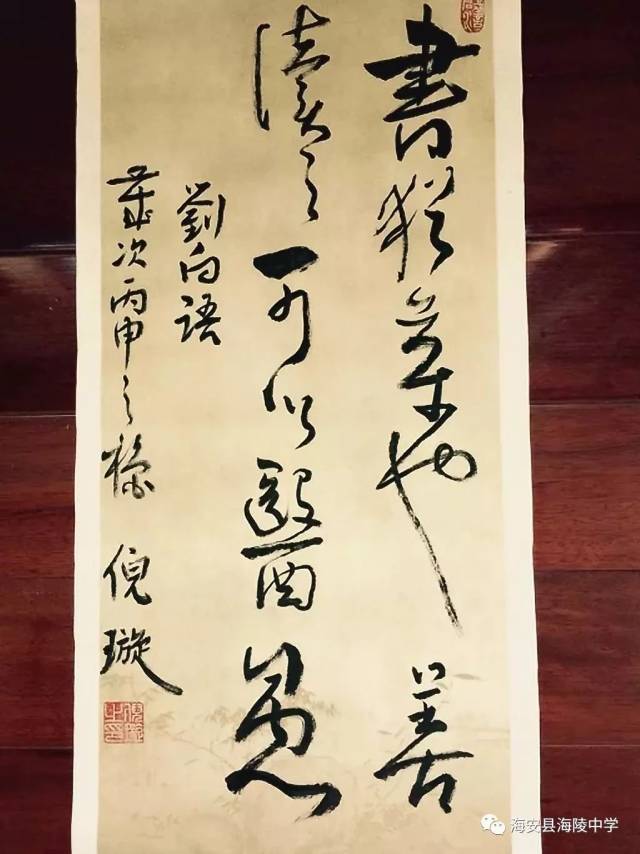 書猶藥也善
讀之可以醫愚
劉向語
歲次丙申之秋
倪璇
海安县海陵中学